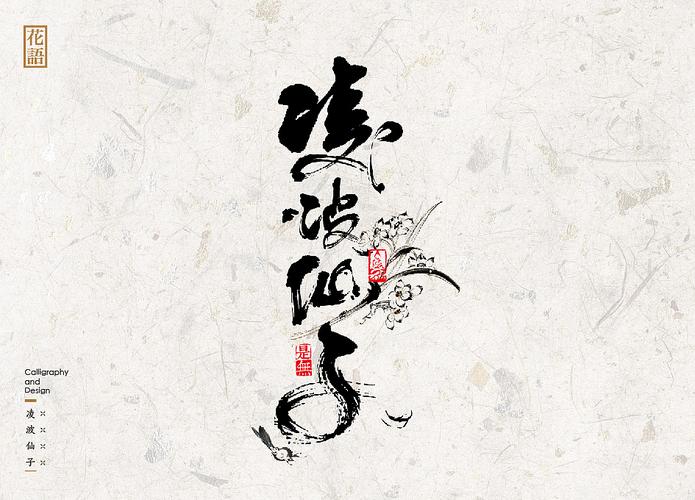 花語
凌波仙子
是無
Calligraphy
and
Design
凌
波
仙
子